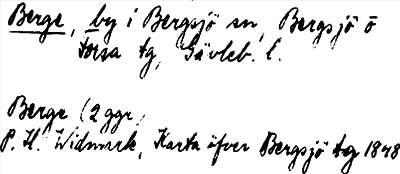 Berge, by i Bergsjö sn, Bergsjö o
Forsa tg, Gävleb. l.
Berge (2 ggr,
P. H. Widmark, Karta öfver Bergsjö tg 1848